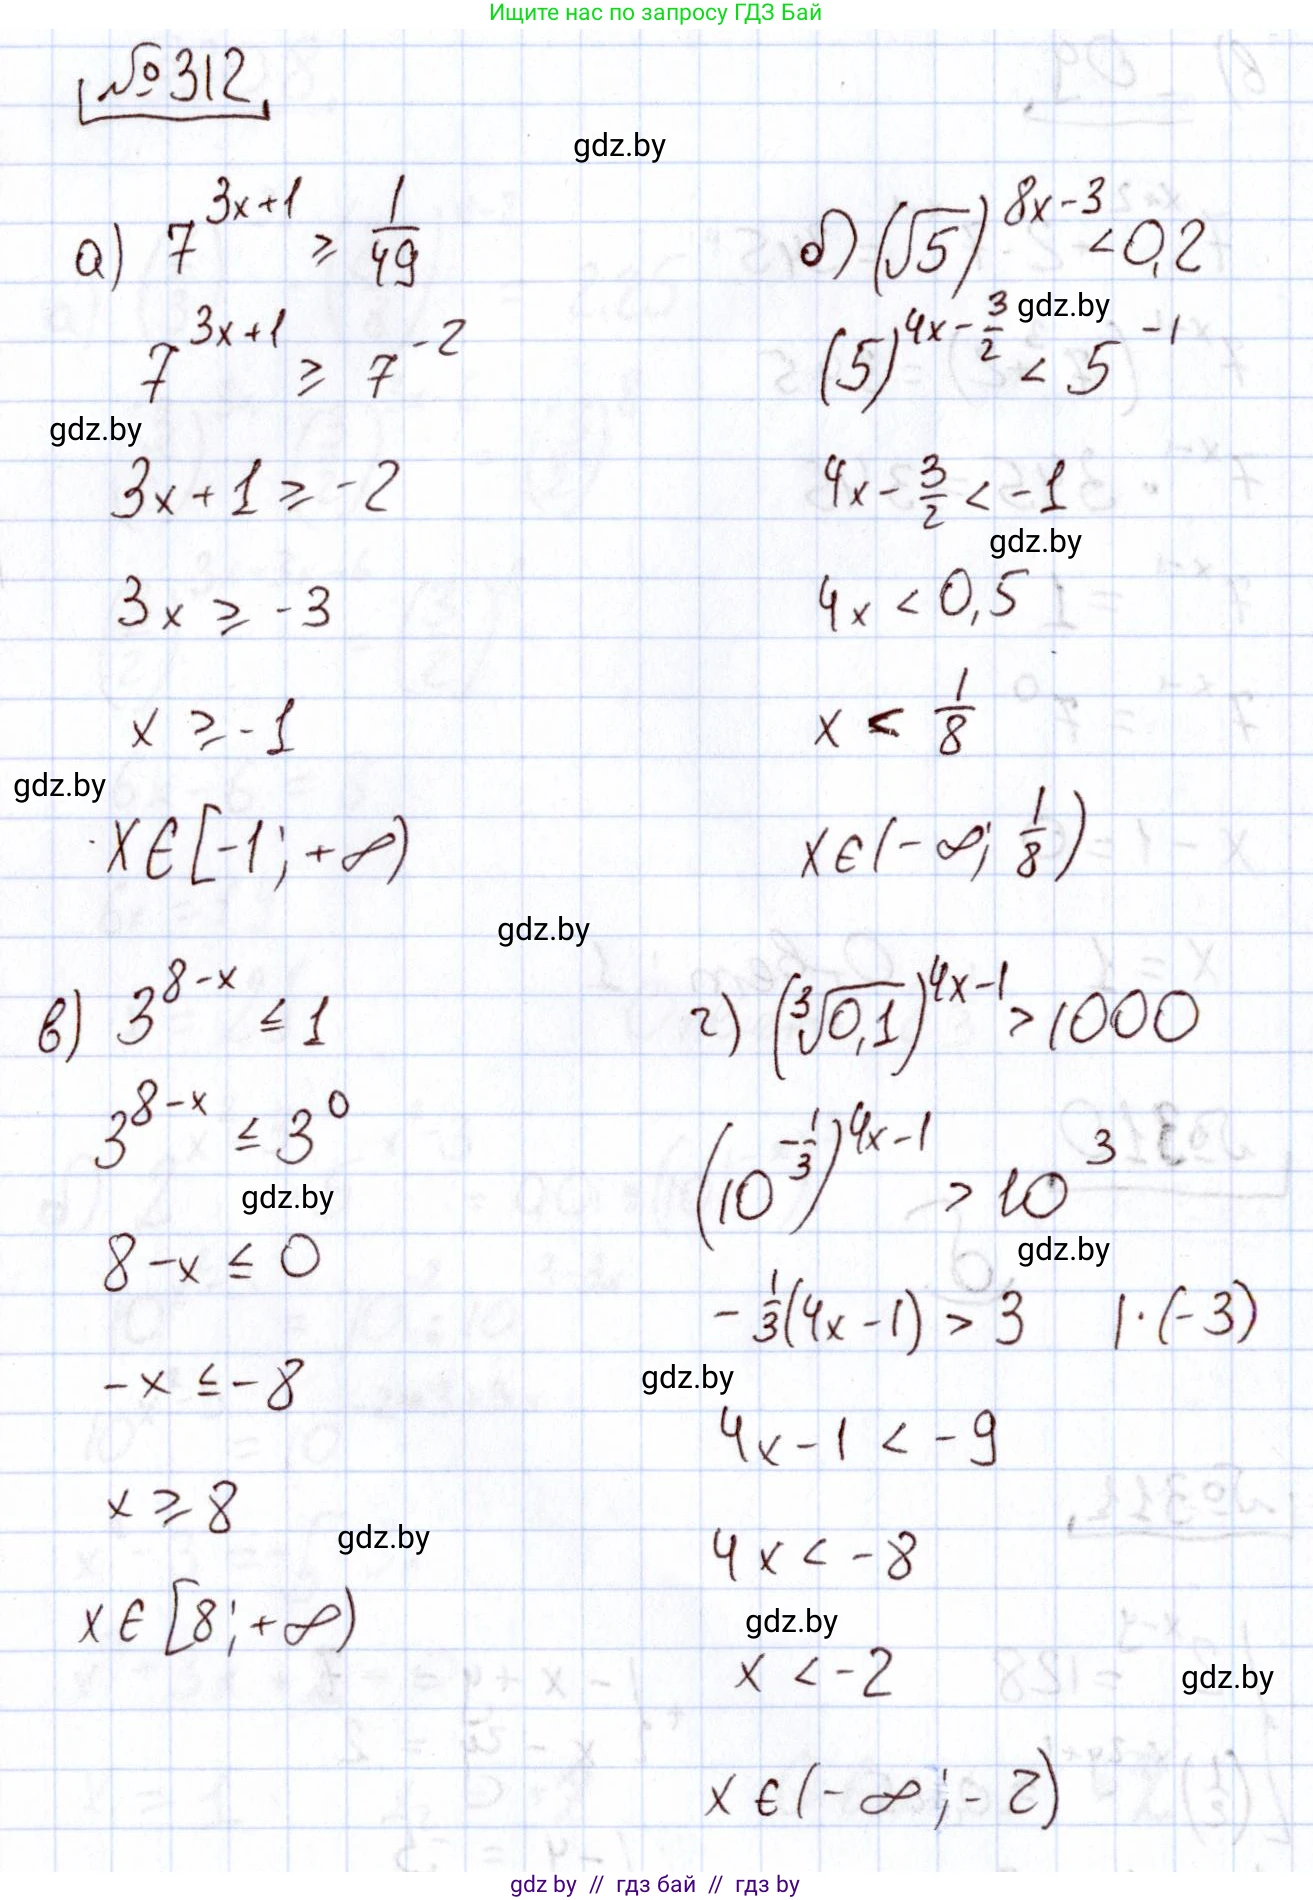 Ищите нас по запросу ГДЗ Бай
№312
gdz.by
а) 7^{3x+1} ≥ 1/49
7^{3x+1} ≥ 7^{-2}
gdz.by
3x+1 ≥ -2
3x ≥ -3
x ≥ -1
gdz.by
x ∈ [-1; +∞)
б) (√5)^{8x-3} < 0,2
gdz.by
(5)^{4x-3/2} < 5^{-1}
4x - 3/2 < -1
gdz.by
4x < 0,5
x < 1/8
x ∈ (-∞; 1/8)
gdz.by
в) 3^{8-x} ≤ 1
3^{8-x} ≤ 3^0
gdz.by
8-x ≤ 0
-x ≤ -8
x ≥ 8
gdz.by
x ∈ [8; +∞)
г) (∛0,1)^{4x-1} > 1000
(10^{-1/3})^{4x-1} > 10^3
gdz.by
-1/3(4x-1) > 3 |·(-3)
gdz.by
4x-1 < -9
4x < -8
gdz.by
x < -2
gdz.by
x ∈ (-∞; -2)
gdz by // гдз бай // гдз by